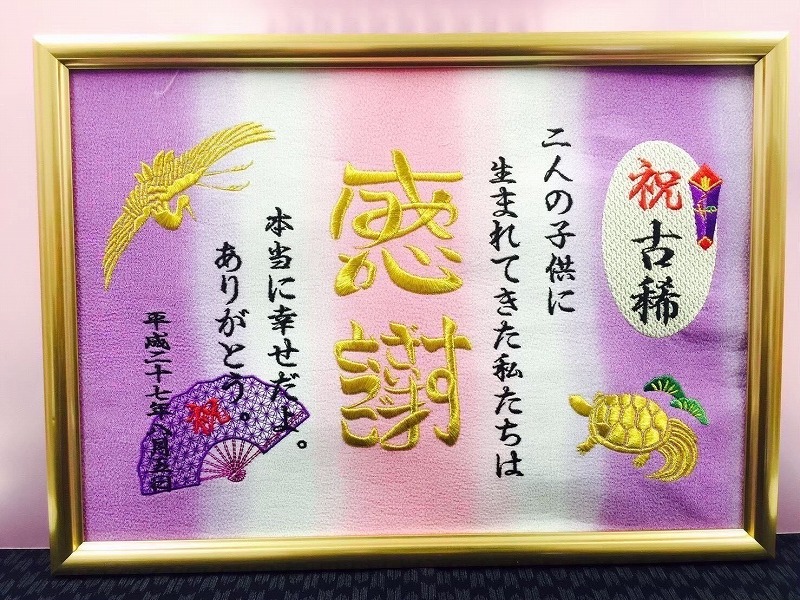 祝
古稀
二人の子供に
生まれてきた私たちは
感謝
本当に幸せだよ。
ありがとう。
祝
平成二十七年八月五日